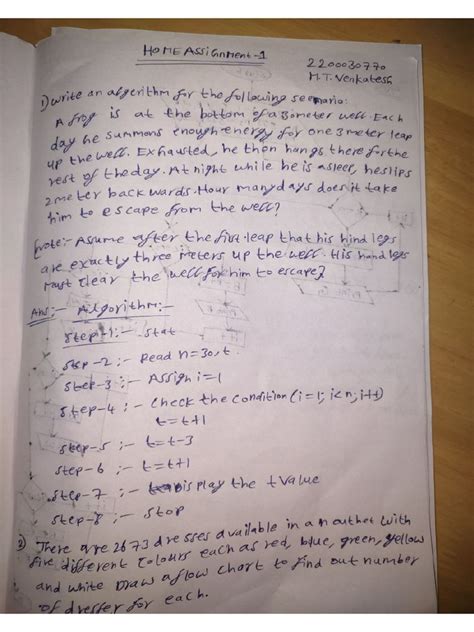 HOME ASSIGNMENT-1
2200030770
M.T. Venkatesh
1) write an algorithm for the following scenario:
A frog is at the bottom of a 30meter well. Each
day he summons enough energy for one 3 meter leap
up the well. Exhausted, he then hangs there for the
rest of the day. At night while he is asleep, he slips
2 meter backwards. How many days does it take
him to escape from the well?
[note:- Assume after the first leap that his hind legs
are exactly three meters up the well. His hind legs
must clear the well for him to escape]
Ans:- Algorithm:-
Step-1:- Stat
Step-2:- Read n=30,t.
Step-3:- Assign i=1
Step-4:- Check the condition (i=1; i<n; i++)
t=t+1
Step-5:- t=t-3
Step-6:- t=t+1
Step-7:- Display the t value
Step-8:- Stop
2) There are 2673 dresses available in a n outlet with
five different colours each as red, blue, green, yellow
and white Draw a flow chart to find out number
of dresser for each.